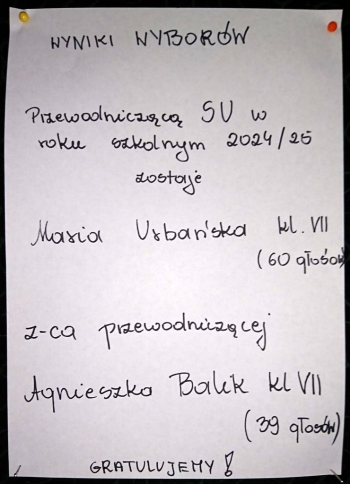 WYNIKI WYBORÓW
Przewodniczącą SU w
roku szkolnym 2024/25
zostaje
Maria Urbańska kl. VII
(60 głosów)
z-ca przewodniczącej
Agnieszka Balik kl VII
(39 głosów)
GRATULUJEMY!